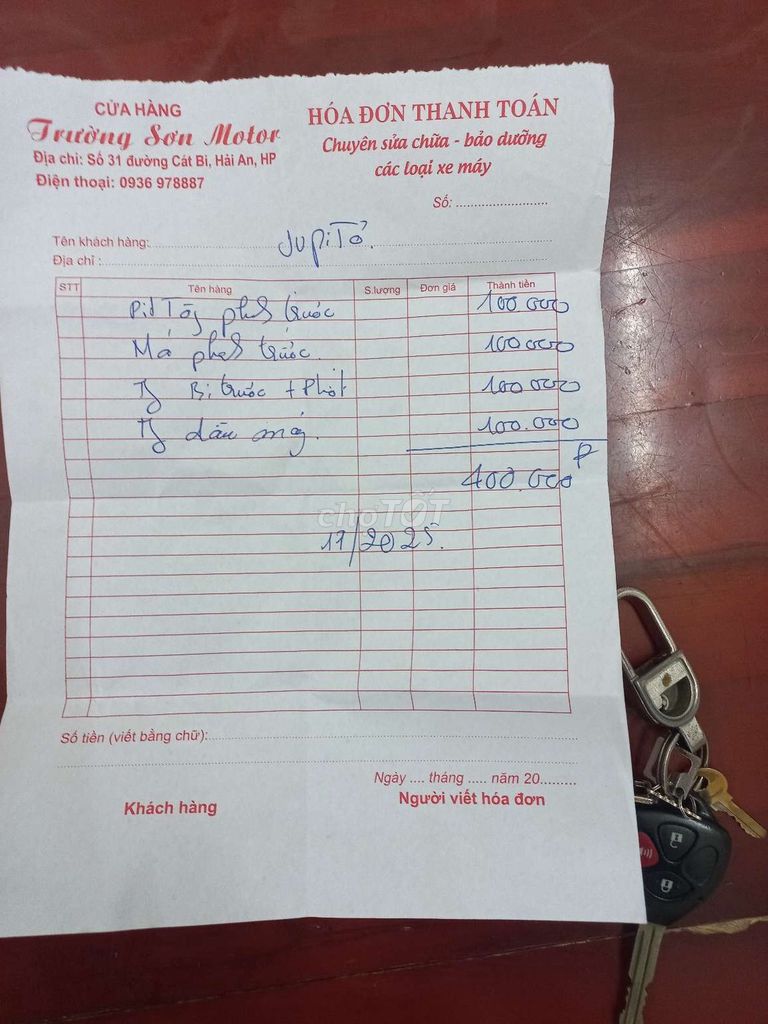 CỬA HÀNG
Trường Sơn Motor
Địa chỉ: Số 31 đường Cát Bi, Hải An, HP
Điện thoại: 0936 978887
HÓA ĐƠN THANH TOÁN
Chuyên sửa chữa - bảo dưỡng
các loại xe máy
Số: ..........................
Tên khách hàng: JupiTơ.
Địa chỉ :
STT Tên hàng S.lượng Đơn giá Thành tiền
trước 100.000
Má trước. 100.000
Bi trước + Phớt 100.000
dầu máy. 100.000
400.000
choTỐT
11/2025.
Số tiền (viết bằng chữ):
Ngày .... tháng ..... năm 20.........
Khách hàng
Người viết hóa đơn